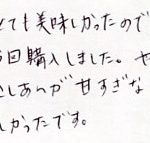 とても美味しかったので
回購入しました。や
しあんが甘すぎな
しかったです。